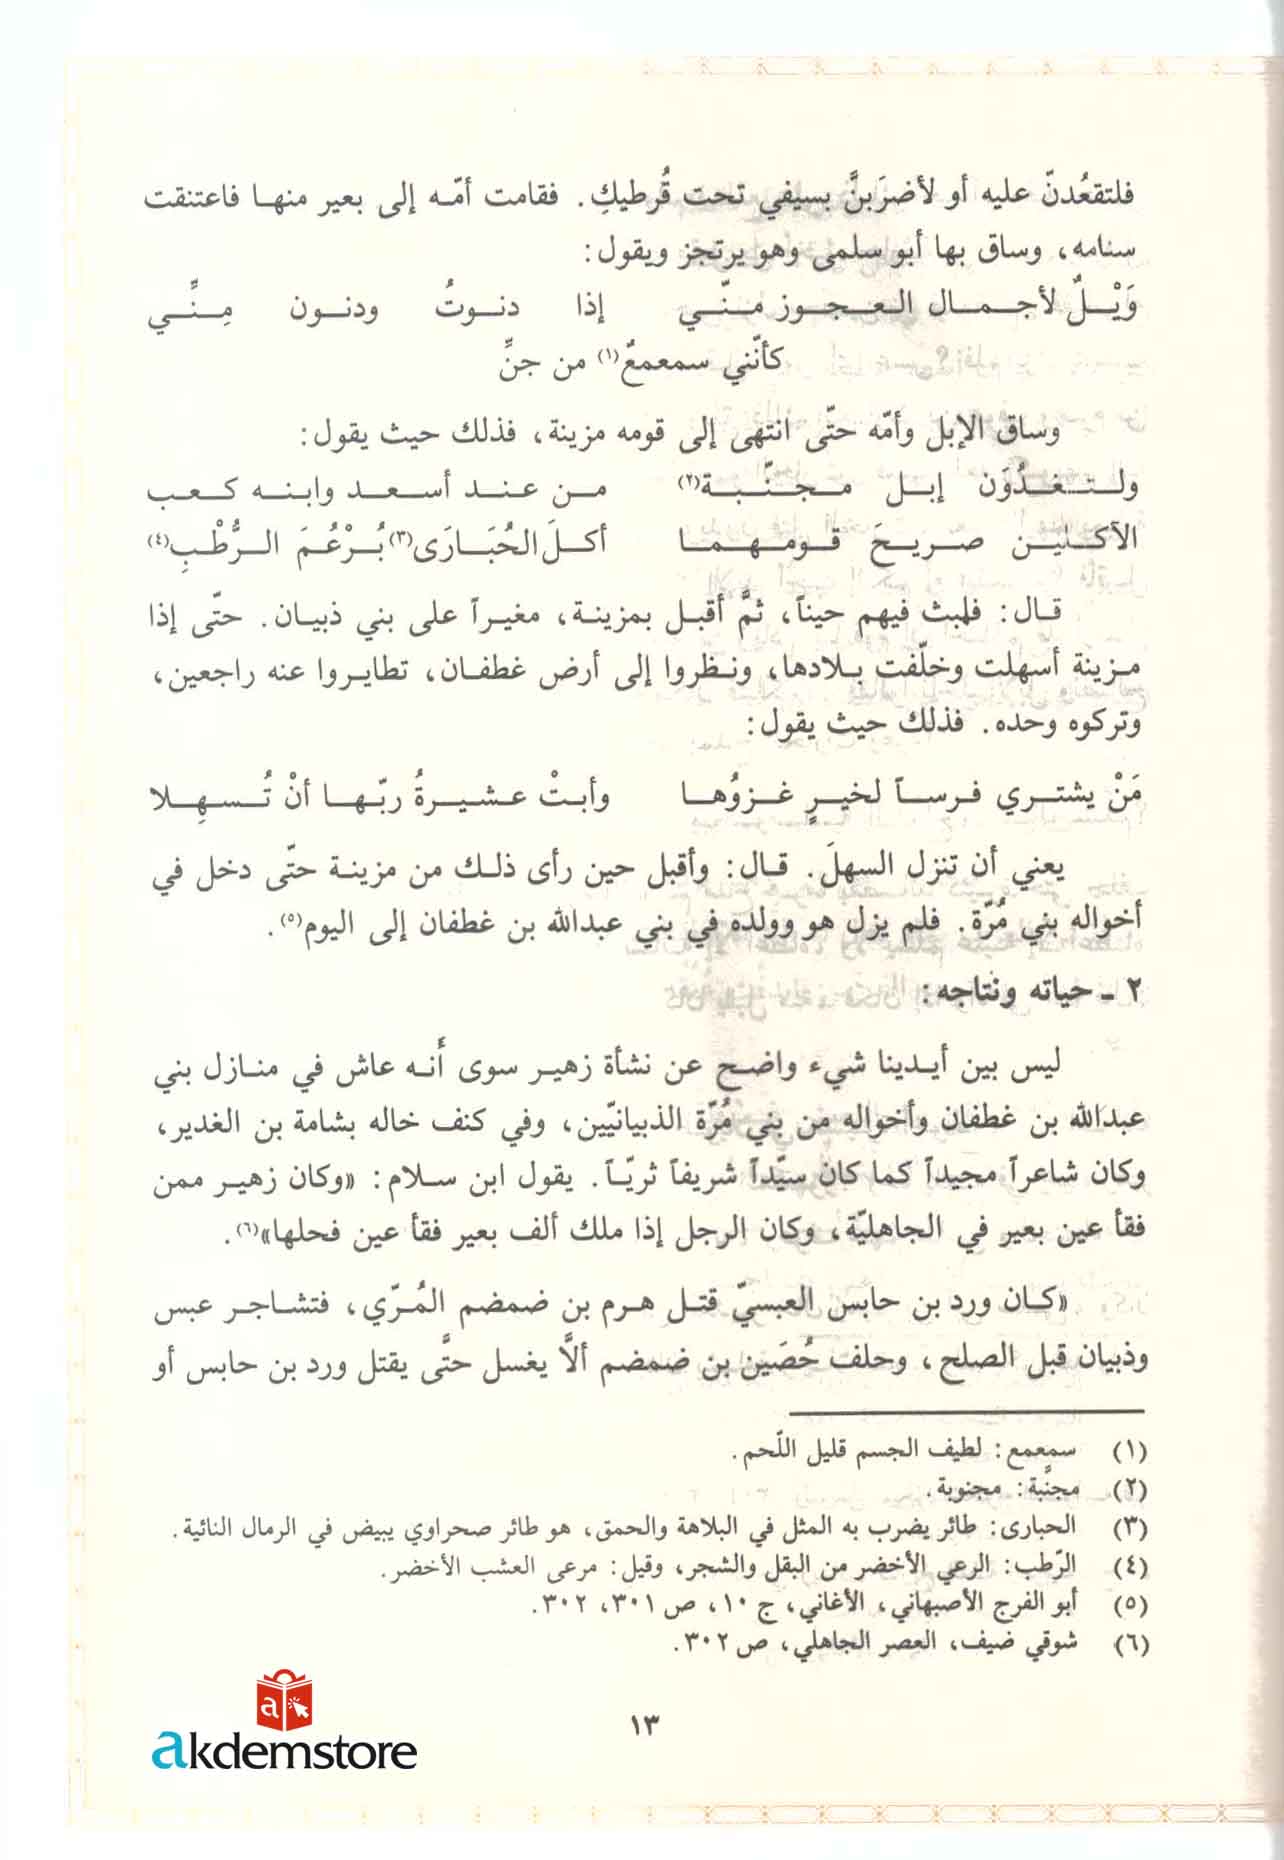 فلتقعُدنّ عليه أو لأضرَبنَّ بسيفي تحت قُرطيكِ. فقامت أمّه إلى بعير منها فاعتنقت
سنامه، وساق بها أبو سلمى وهو يرتجز ويقول:
وَيْلٌ لأجمال العجوز منّي إذا دنوتُ ودنون مِنِّي
كأنّني سمعمعٌ(١) من جنِّ
وساق الإبل وأمّه حتّى انتهى إلى قومه مزينة، فذلك حيث يقول:
ولتغدُوَن إبل مجنّبة(٢) من عند أسعد وابنه كعب
الآكلين صريحَ قومهما أكلَ الحُبَارَى(٣) بُرْعُمَ الرُّطْبِ(٤)
قال: فلبث فيهم حيناً، ثمَّ أقبل بمزينة، مغيراً على بني ذبيان. حتّى إذا
مزينة أسهلت وخلّفت بلادها، ونظروا إلى أرض غطفان، تطايروا عنه راجعين،
وتركوه وحده. فذلك حيث يقول:
مَنْ يشتري فرساً لخيرٍ غزوُها وأبتْ عشيرةُ ربّها أنْ تُسهِلا
يعني أن تنزل السهلَ. قال: وأقبل حين رأى ذلك من مزينة حتّى دخل في
أخواله بني مُرّة. فلم يزل هو وولده في بني عبدالله بن غطفان إلى اليوم(٥).
٢ ـ حياته ونتاجه:
ليس بين أيدينا شيء واضح عن نشأة زهير سوى أنه عاش في منازل بني
عبدالله بن غطفان وأخواله من بني مُرّة الذبيانيّين، وفي كنف خاله بشامة بن الغدير،
وكان شاعراً مجيداً كما كان سيّداً شريفاً ثريّاً. يقول ابن سلام: «وكان زهير ممن
فقأ عين بعير في الجاهليّة، وكان الرجل إذا ملك ألف بعير فقأ عين فحلها»(٦).
«كان ورد بن حابس العبسيّ قتل هرم بن ضمضم المُرّي، فتشاجر عبس
وذبيان قبل الصلح، وحلف حُصَين بن ضمضم ألاَّ يغسل حتَّى يقتل ورد بن حابس أو
(١) سمعمع: لطيف الجسم قليل اللّحم.
(٢) مجنَّبة: مجنوبة.
(٣) الحبارى: طائر يضرب به المثل في البلاهة والحمق، هو طائر صحراوي يبيض في الرمال النائية.
(٤) الرّطب: الرعي الأخضر من البقل والشجر، وقيل: مرعى العشب الأخضر.
(٥) أبو الفرج الأصبهاني، الأغاني، ج ١٠، ص ٣٠١، ٣٠٢.
(٦) شوقي ضيف، العصر الجاهلي، ص ٣٠٢.
١٣
a
akdemstore